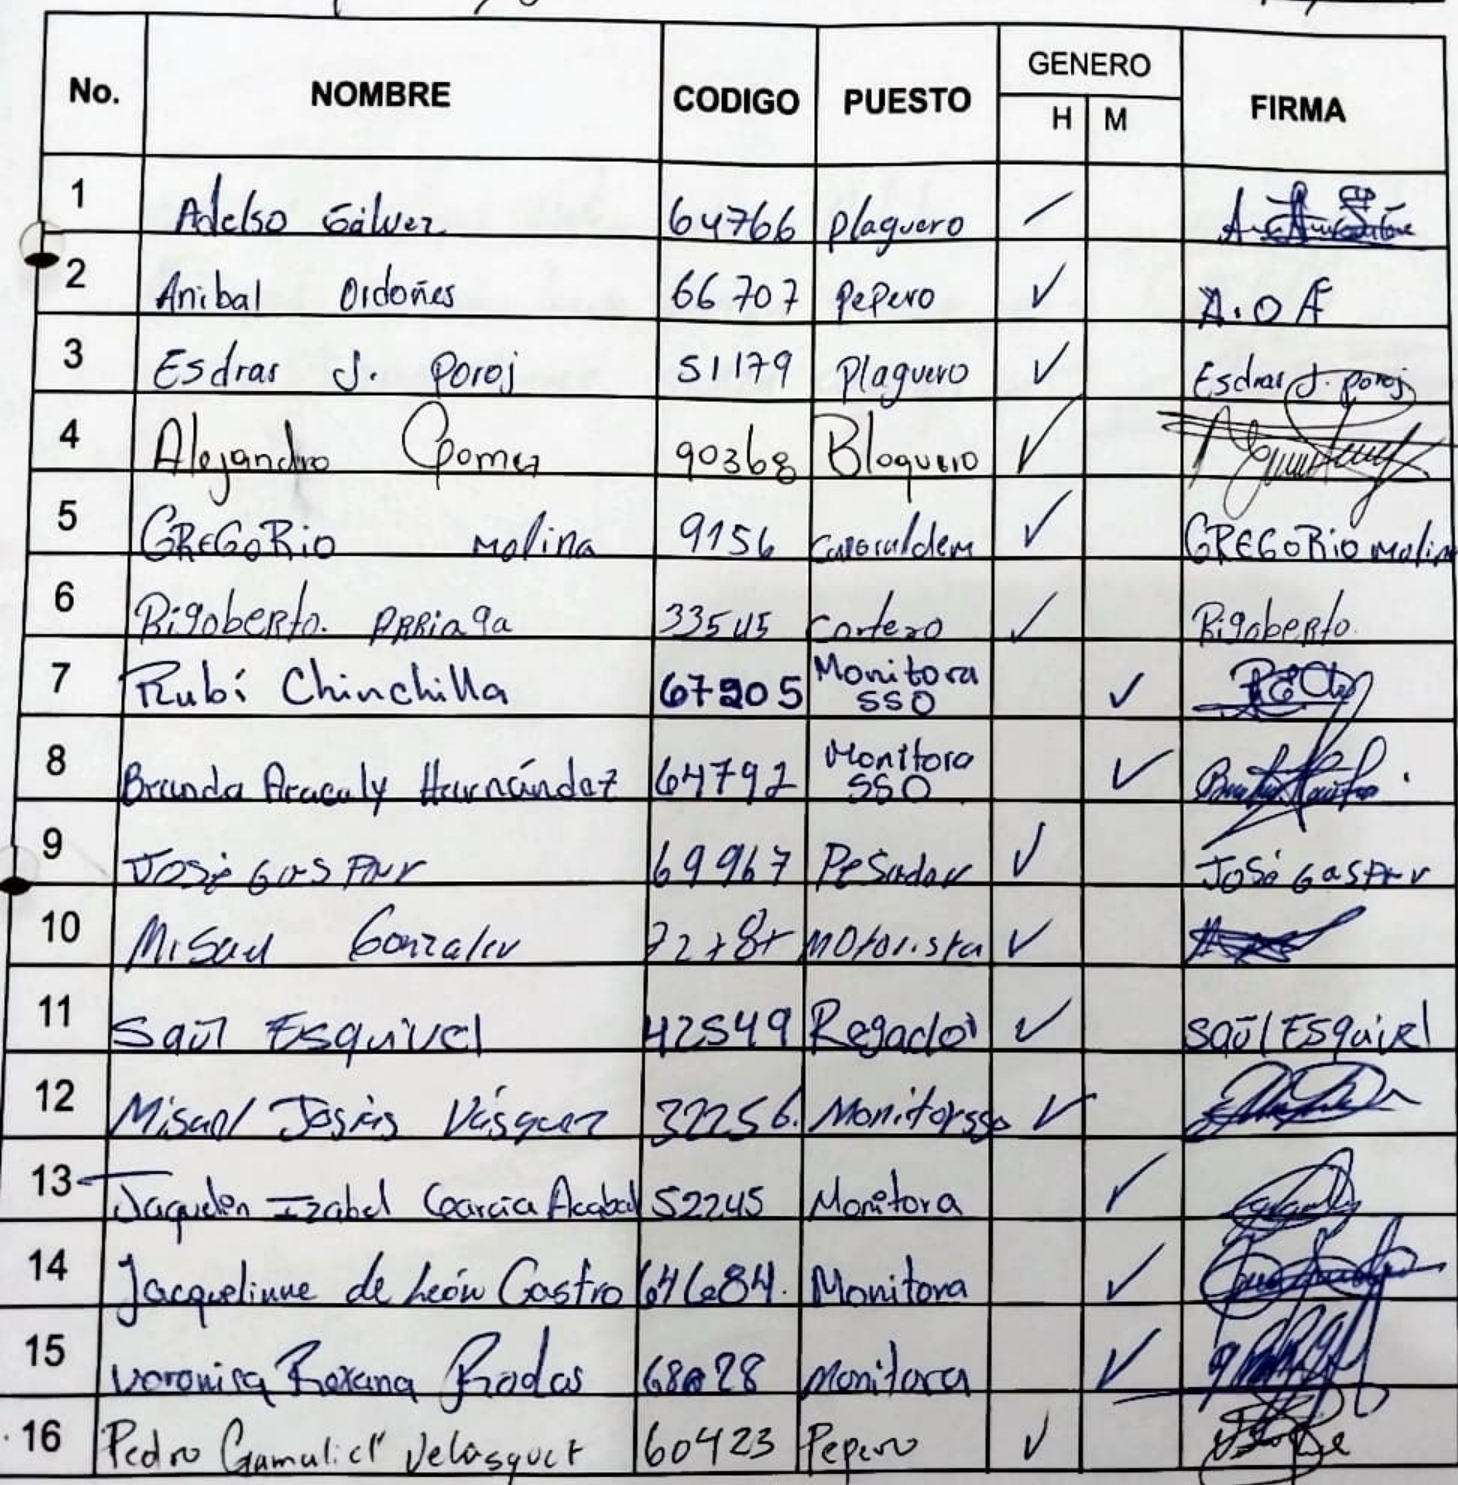 No. NOMBRE CODIGO PUESTO GENERO FIRMA
H M
1 Adelso Gálvez 64766 plaguero
2 Anibal Ordoñes 66707 pepero A.O.F
3 Esdras J. poroj 51179 plaguero Esdras J. poroj
4 Alejandro Gomez 90368 Bloquero
5 GREGORio molina 9156 GREGORio molin
6 Rigoberto. ARRiaga 33545 cortero Rigoberto.
7 Rubí Chinchilla 67205 Monitora SSO
8 Brenda Aracely Hernández 64792 Monitora SSO
9 José GasPar 69967 Pesador José GasPar
10 Misael Gonzalez Motorista
11 Saúl Esquivel 42549 Regador Saúl ESquivel
12 Misael Josías Vásquez 32256. Monitor sso
13 Jaquelin Izabel García Acabal 52245 Monitora
14 Jacquelinne de León Castro 64684. Monitora
15 Veronica Roxana Rodas 68028 Monitora
16 Pedro Gamaliel Velásquez 60423 Pepero